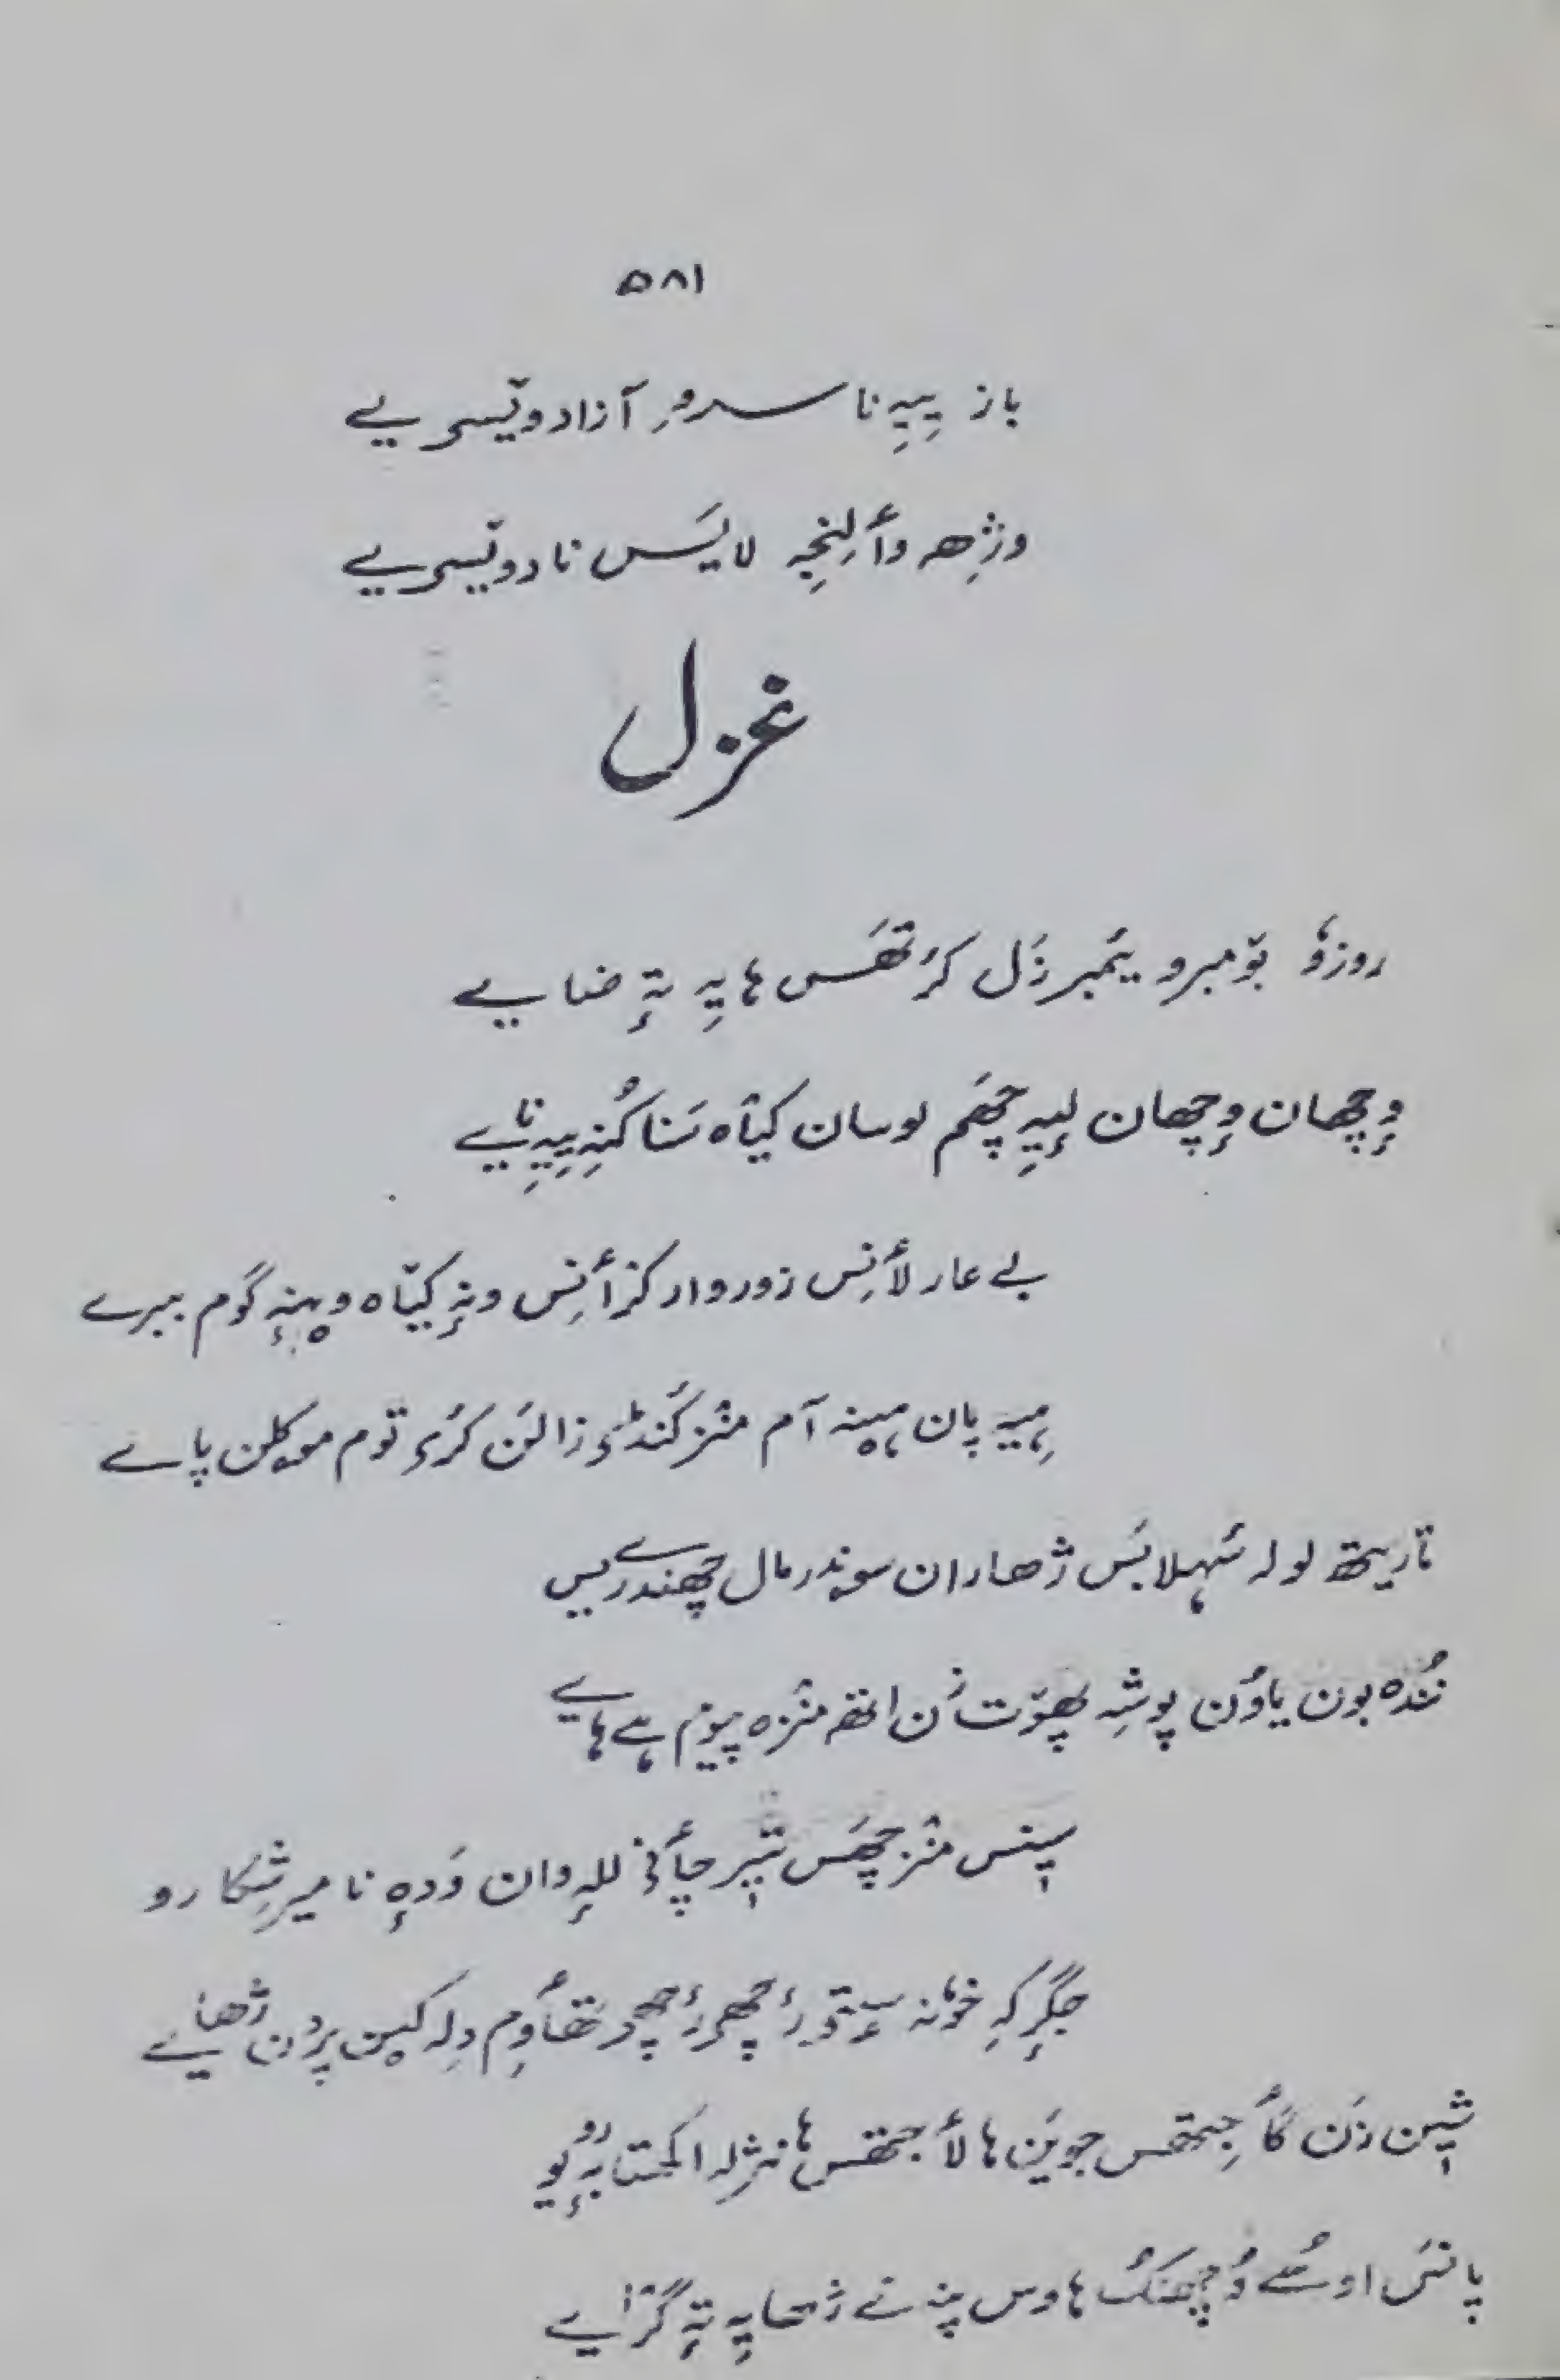 ۵۸۱
باز یِیہِ نا سروِ آزاد ویٚسی یے
وژھِ وألِنجہِ لایَس ناد ویٚسی یے
غزل
روزٕو بۆمبرو یمبرزَل کرٕتھَس ہایہِ تہٕ ضایے
وٕچھان وٕچھان لیہِ چھَم لوسان کیاہ سَنا کُنہِ ییہِ نایے
بے عار لأنِس زوروار کرٛأنِس ونہٕ کیٛاہ وۄنہٕ گوم میرے
پان آم منٛز کَنڈؠ زالَن کرٕؠ توم موکلن پاے
تأرِتھ لولہ سٔہلابَس ژھاران سوندرمال چھندریس
نُندہ بون یاوُن پوشہِ پھۆت زَن اتھہ منٛزہ پیوٚم ہے ہایے
سیٖنس منٛز چھَس تیٖر چأنؠ للہٕ وان وَدہٕ نا میرِ شِکارو
جِگرِکہِ خونہٕ سٟتؠ رٔچھؠ رٔچھؠ تھأوِم دِلہٕ کیٖن پردن ژھایے
شیٖن زَن گأجِتھس جویَن ہا لأجتھس ہا نژِلہٕ اکھتابہٕ رُویو
پانَس اوسُے وُچھنُک ہاوس پنہٕ نے ژھایہِ تہٕ گرٛایے